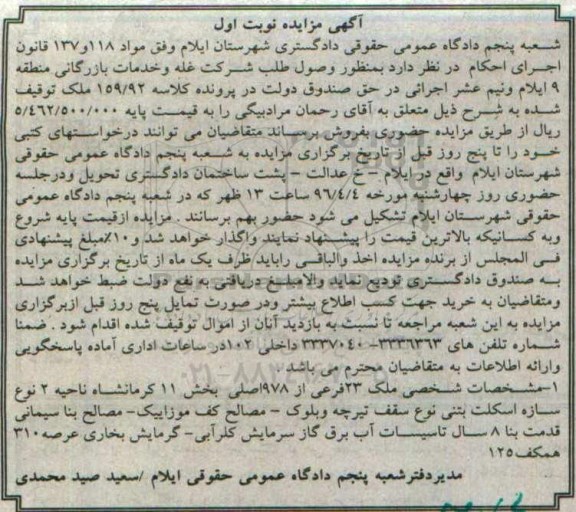 آگهی مزایده نوبت اول
شعبه پنجم دادگاه عمومی حقوقی دادگستری شهرستان ایلام وفق مواد ۱۱۸و۱۳۷ قانون
اجرای احکام در نظر دارد بمنظور وصول طلب شرکت غله وخدمات بازرگانی منطقه
۹ ایلام ونیم عشر اجرائی در حق صندوق دولت در پرونده کلاسه ۱۵۹/۹۲ ملک توقیف
شده به شرح ذیل متعلق به آقای رحمان مرادبیگی را به قیمت پایه ۵/۴۶۲/۵۰۰/۰۰۰
ریال از طریق مزایده حضوری بفروش برساند متقاضیان می توانند درخواستهای کتبی
خود را تا پنج روز قبل از تاریخ برگزاری مزایده به شعبه پنجم دادگاه عمومی حقوقی
شهرستان ایلام واقع در ایلام - خ عدالت - پشت ساختمان دادگستری تحویل ودرجلسه
حضوری روز چهارشنبه مورخه ۹۶/۴/۴ ساعت ۱۳ ظهر که در شعبه پنجم دادگاه عمومی
حقوقی شهرستان ایلام تشکیل می شود حضور بهم برسانند . مزایده ازقیمت پایه شروع
وبه کسانیکه بالاترین قیمت را پیشنهاد نمایند واگذار خواهد شد و۱۰٪مبلغ پیشنهادی
فی المجلس از برنده مزایده اخذ والباقی راباید ظرف یک ماه از تاریخ برگزاری مزایده
به صندوق دادگستری تودیع نماید والامبلغ دریافتی به نفع دولت ضبط خواهد شد
ومتقاضیان به خرید جهت کسب اطلاع بیشتر ودر صورت تمایل پنج روز قبل ازبرگزاری
مزایده به این شعبه مراجعه تا نسبت به بازدید آنان از اموال توقیف شده اقدام شود . ضمنا
شماره تلفن های ۳۳۳۶۳۶۳-۳۳۳۷۰۴۰ داخلی ۱۰۲در ساعات اداری آماده پاسخگویی
وارائه اطلاعات به متقاضیان محترم می باشد
۱-مشخصات شخصی ملک ۲۳فرعی از ۹۷۸اصلی بخش ۱۱ کرمانشاه ناحیه ۲ نوع
سازه اسکلت بتنی نوع سقف تیرچه وبلوک - مصالح کف موزاییک- مصالح بنا سیمانی
قدمت بنا ۸ سال تاسیسات آب برق گاز سرمایش کلرآبی- گرمایش بخاری عرصه۳۱۰
همکف۱۲۵
مدیردفترشعبه پنجم دادگاه عمومی حقوقی ایلام /سعید صید محمدی